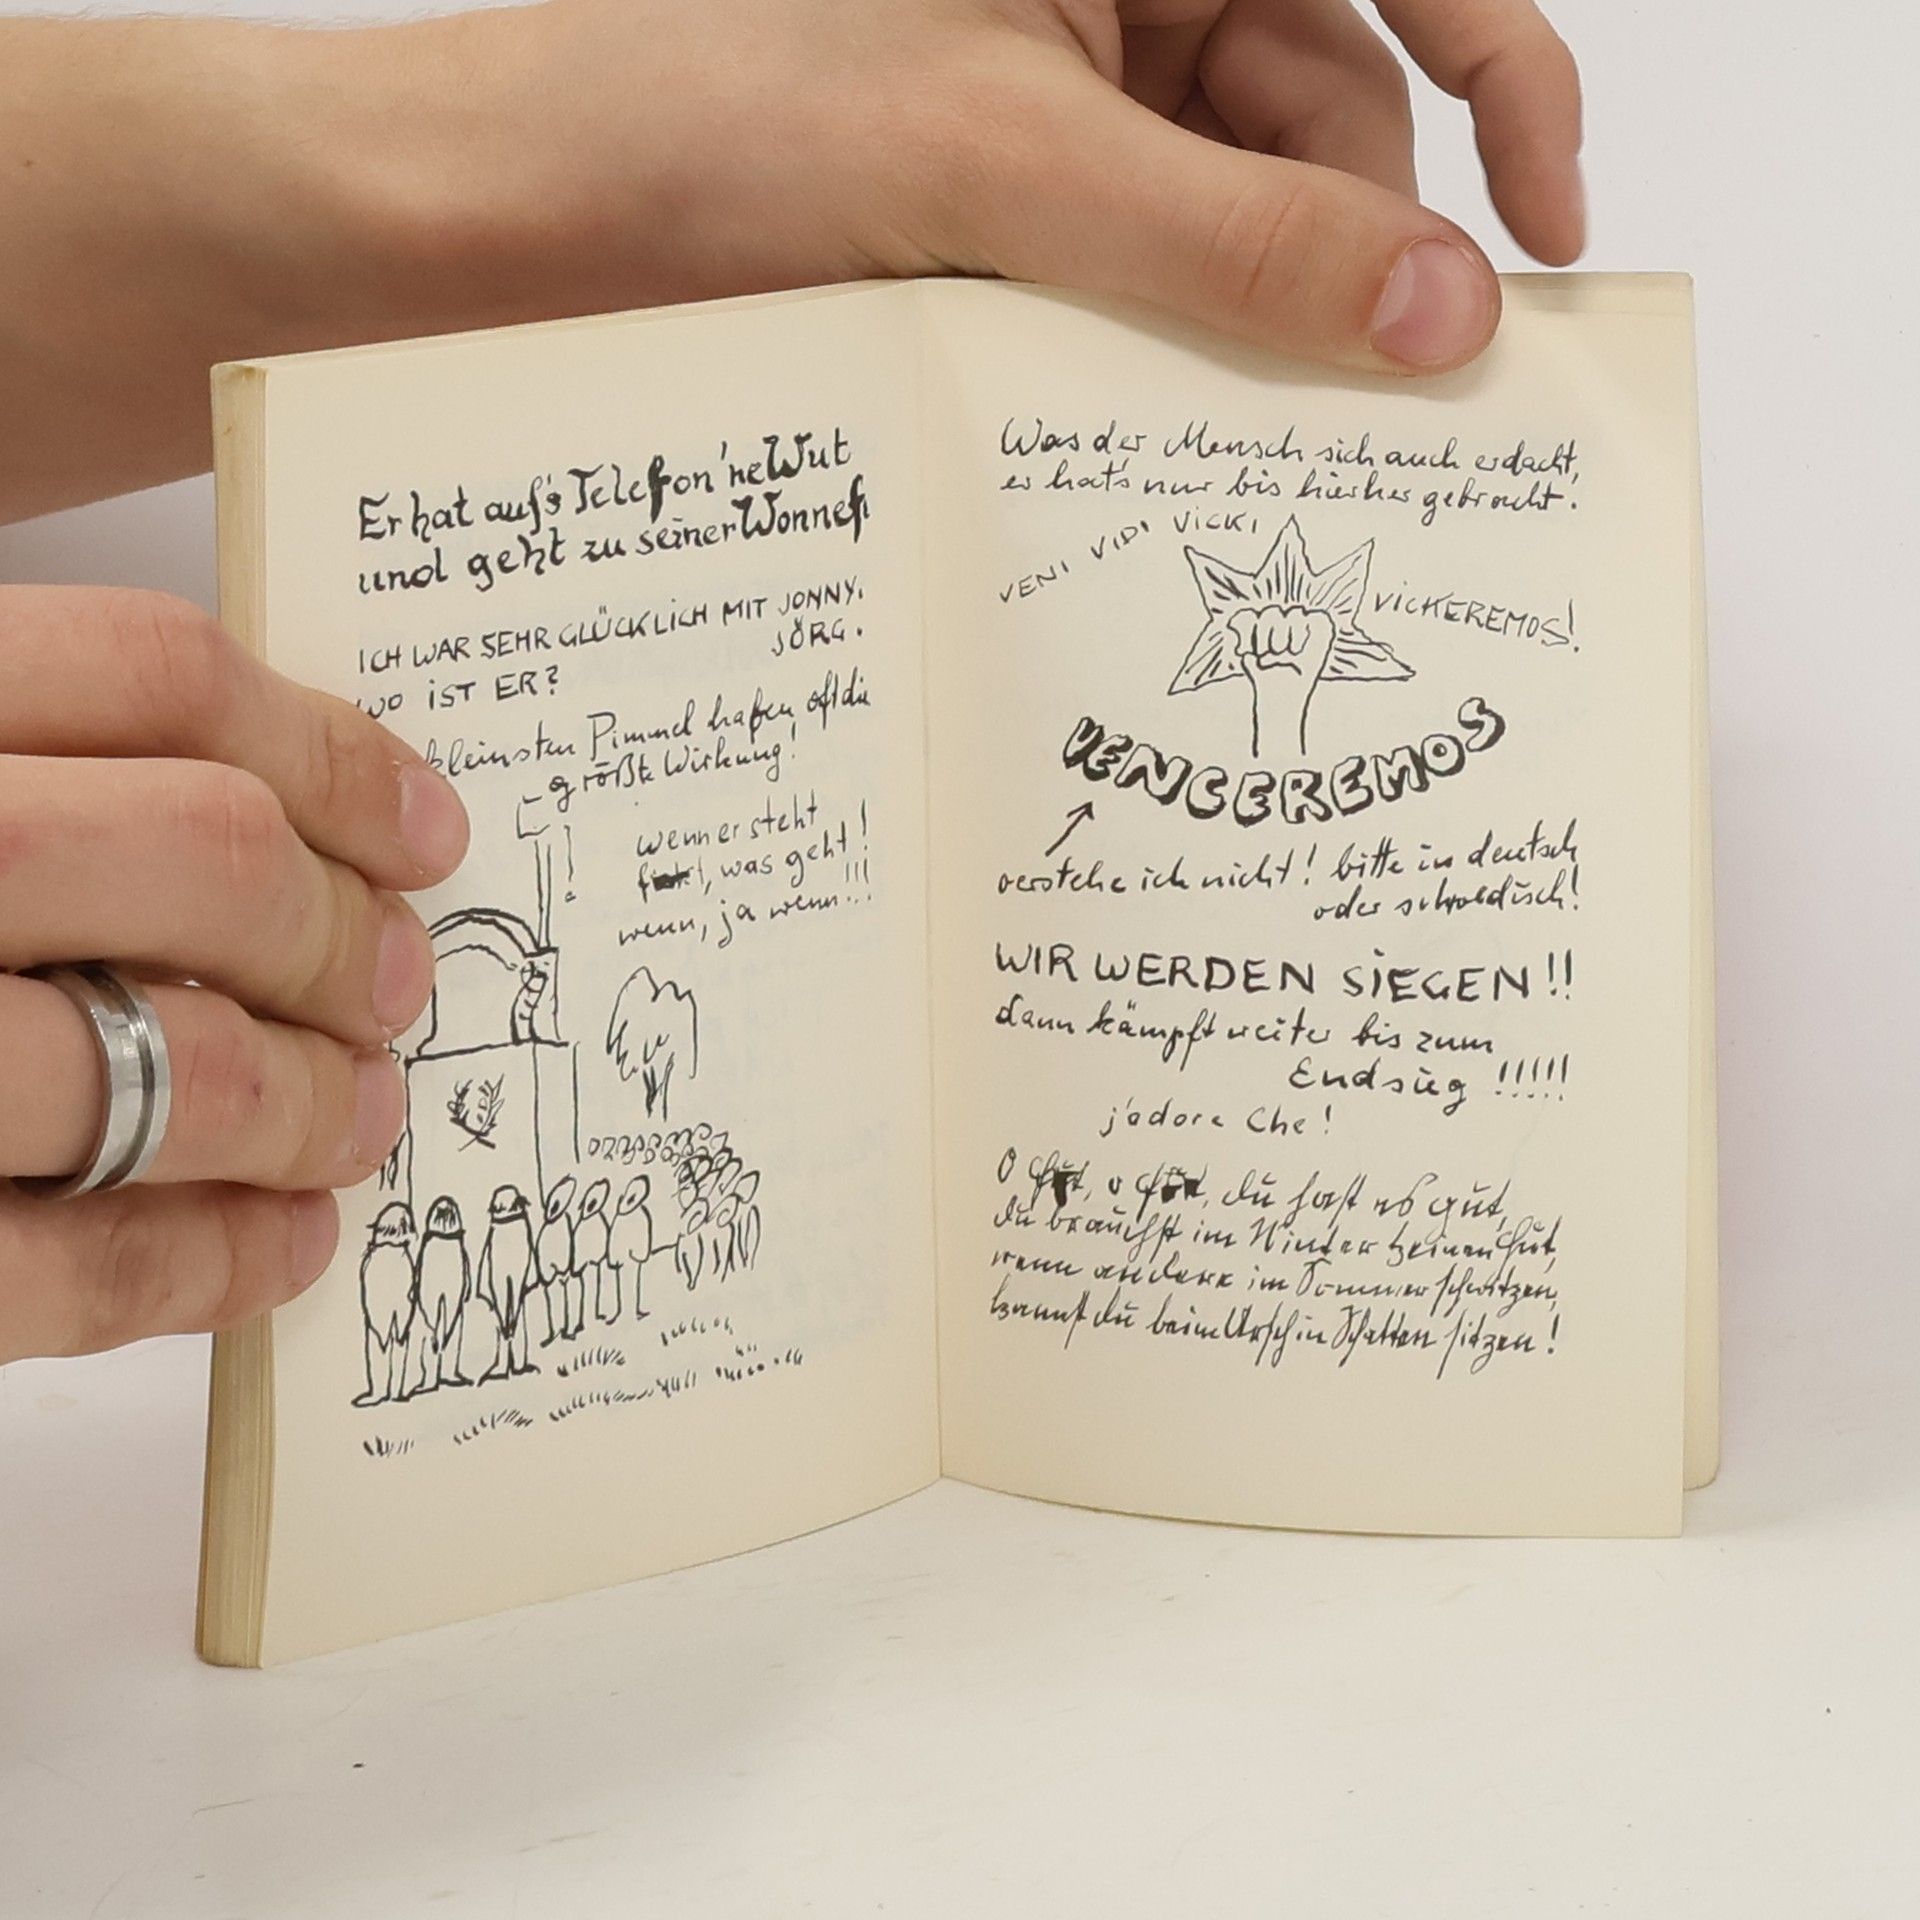 Er hat auf's Telefon 'ne Wut
und geht zu seiner Wonne
ICH WAR SEHR GLÜCKLICH MIT JONNY.
JÖRG.
WO IST ER?
kleinsten Pimmel haben oft die
größte Wirkung!
wenn er steht
, was geht!
wenn, ja wenn!!!
Was der Mensch sich auch erdacht,
er hat's nur bis hierher gebracht.
VENI VIDI VICKI
VICKEREMOS!
VENCEREMOS
verstehe ich nicht! bitte in deutsch
oder schwedisch!
WIR WERDEN SIEGEN!!
dann kämpft weiter bis zum
Endsieg !!!!!
j'adore Che!
O , o , du hast es gut,
du brauchst im Winter keinen Hut,
wenn andere im Sommer schwitzen,
kannst du beim Arsch in Schatten sitzen!